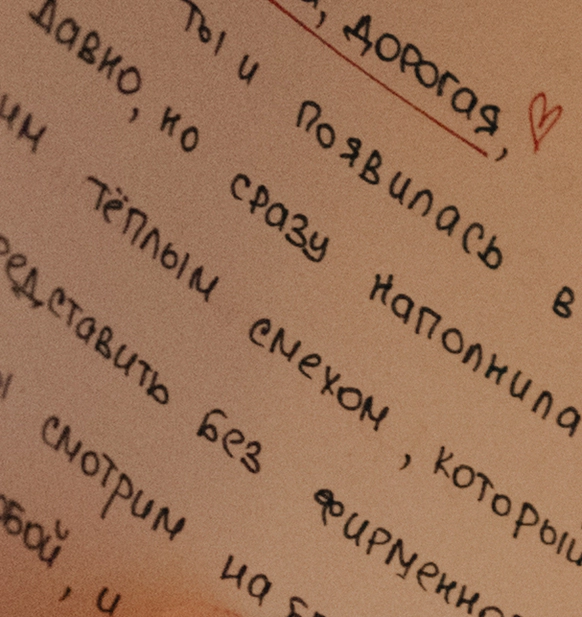 , дорогая,
ты и появилась в
давно, но сразу наполнила
им тёплым смехом, который
редставить без фирменно
смотрим на
обой, и